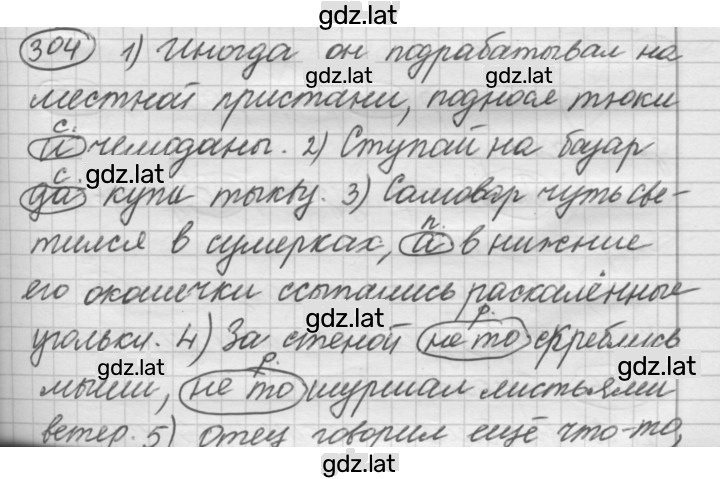 gdz.lat
304 1) Иногда он подрабатывал на
gdz.lat gdz.lat
местной пристани, поднося тюки
с.
и чемоданы. 2) Ступай на базар
gdz.lat
с.
да купи тыкву. 3) Самовар чуть све-
п.
тился в сумерках, а в нижние
его окошечки ссыпались раскалённые
gdz.lat
р.
угольки. 4) За стеной не то скреблись
р.
gdz.lat gdz.lat
мыши, не то шуршал листьями
ветер. 5) Отец говорил ещё что-то,
gdz.lat